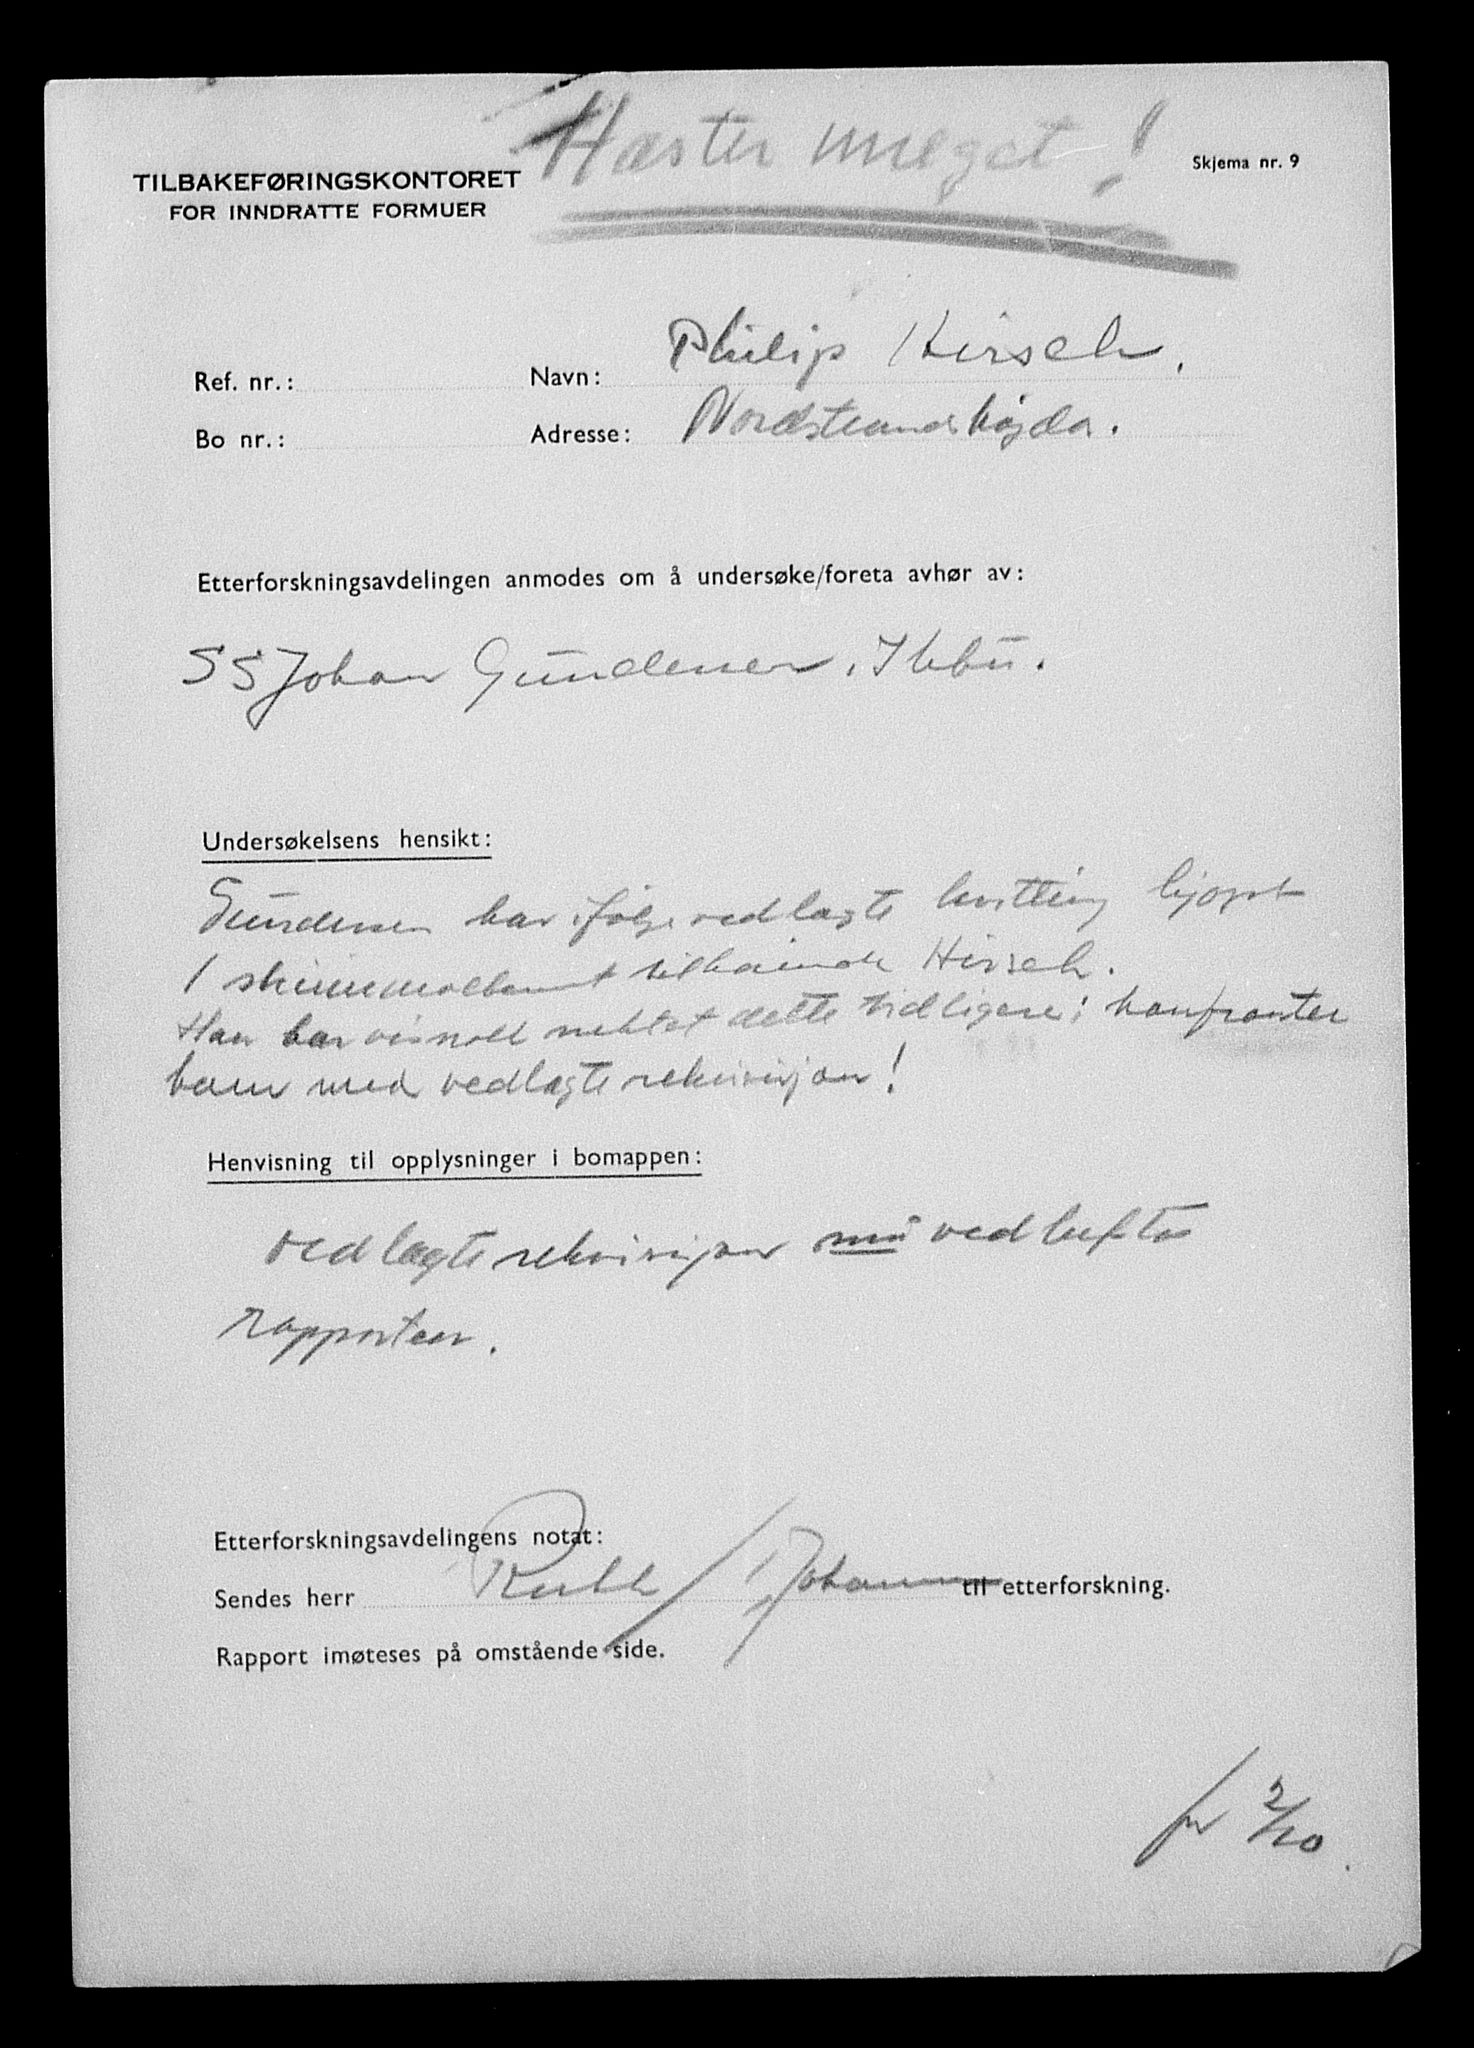 Haster meget!
TILBAKEFØRINGSKONTORET
FOR INNDRATTE FORMUER
Skjema nr. 9
Ref. nr.: Navn: Philip Hirsch.
Bo nr.: Adresse: Nordstrandshøgda.
Etterforskningsavdelingen anmodes om å undersøke/foreta avhør av:
SS Johan Gundersen, Ilebu.
Undersøkelsens hensikt:
Gundersen har ifølge vedlagte kvittering kjøpt
1 skinnmøblement tilhørende Hirsch.
Han har visnok nektet dette tidligere; konfronter
ham med vedlagte rekvisisjon!
Henvisning til opplysninger i bomappen:
vedlagte rekvisisjon må vedheftes
rapporten.
Etterforskningsavdelingens notat:
Sendes herr / Johan til etterforskning.
Rapport imøteses på omstående side.
2/10.